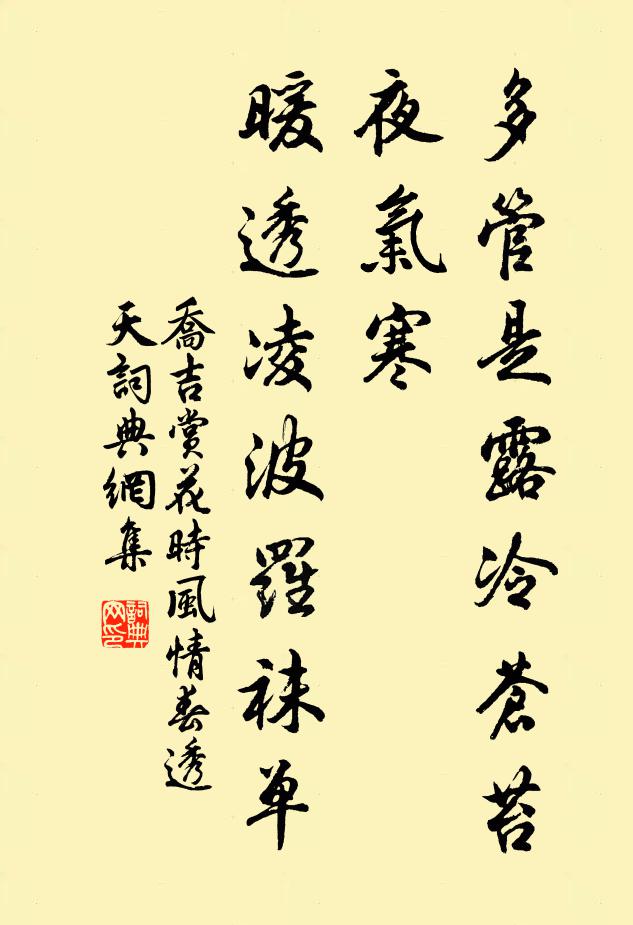 多管是露冷蒼苔
夜氣寒
暖透凌波羅襪单
喬吉賞花時風情春透
天詞典網集
詞典网印